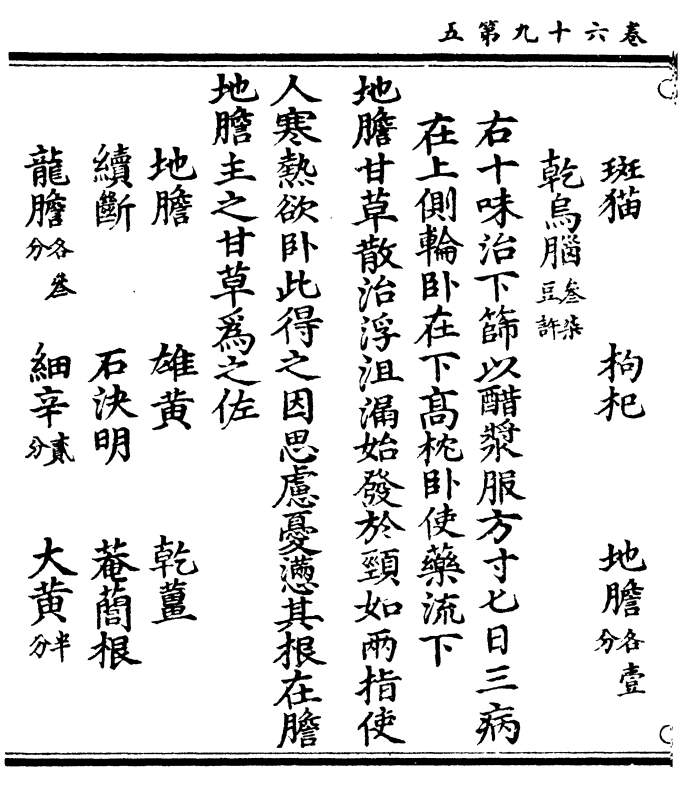 卷六十九第五
斑猫 枸杞 地膽各壹分
乾烏腦叄柒豆許
右十味治下篩以醋漿服方寸匕日三病
在上側輪卧在下髙枕卧使藥流下
地膽甘草散治浮沮漏始發於頸如兩指使
人寒熱欲卧此得之因思慮憂懣其根在膽
地膽主之甘草爲之佐
地膽 雄黄 乾薑
續斷 石決明 菴䕡根
龍膽各叁分 細辛貳分 大黄半分